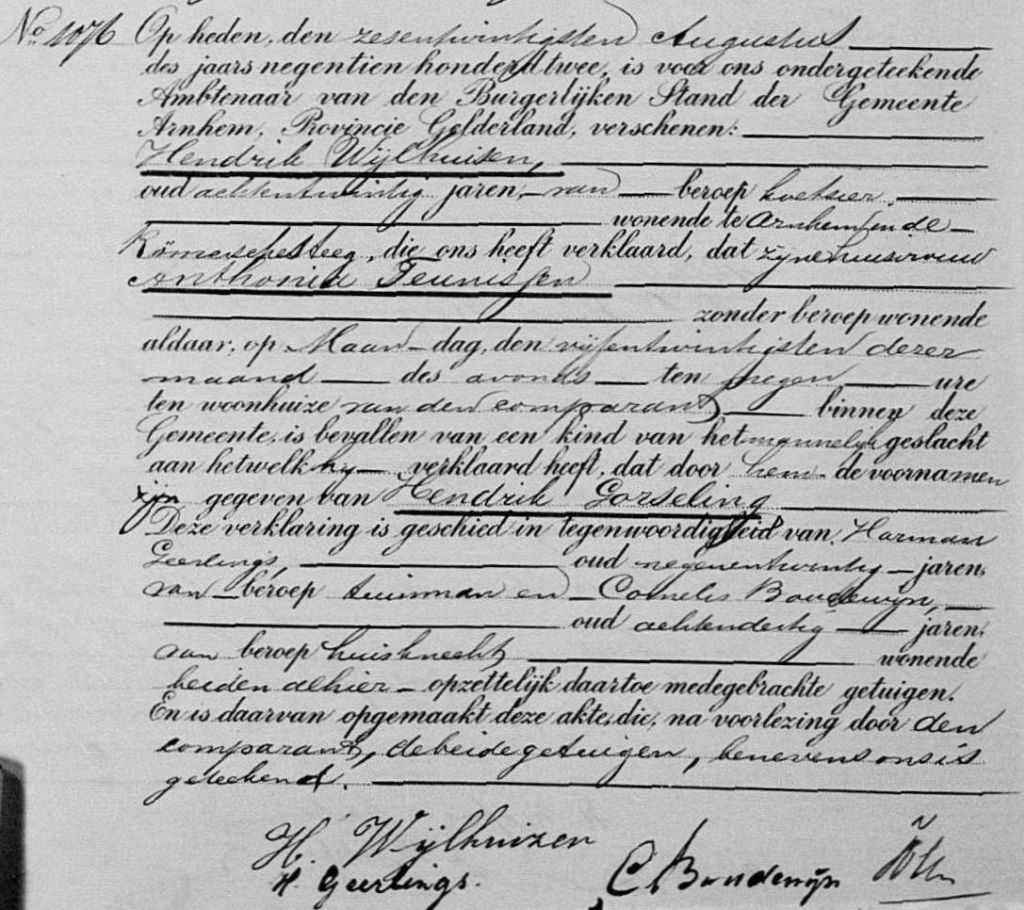 No 1076 Op heden, den zesentwintigsten Augustus
des jaars negentien honderd twee, is voor ons ondergeteekende
Ambtenaar van den Burgerlijken Stand der Gemeente
Arnhem, Provincie Gelderland, verschenen:
Hendrik Wijlhuisen,
oud achtentwintig jaren, van beroep koetsier,
wonende te Arnhem in de
die ons heeft verklaard, dat zijne huisvrouw
Anthonia Teunissen
zonder beroep wonende
aldaar, op Maandag, den vijfentwintigsten dezer
maand des avonds ten negen ure
ten woonhuize van den comparant binnen deze
Gemeente, is bevallen van een kind van het mannelijk geslacht
aan hetwelk hij verklaard heeft, dat door hem de voornamen
zijn gegeven van Hendrik Gorseling
Deze verklaring is geschied in tegenwoordigheid van Harman
Geerlings, oud negenentwintig jaren,
van beroep tuinman en Cornelis Boudewijn,
oud achtendertig jaren,
van beroep huisknecht wonende
beiden alhier opzettelijk daartoe medegebrachte getuigen.
En is daarvan opgemaakt deze akte, die, na voorlezing door den
comparant, de beide getuigen, benevens ons is
geteekend.
H. Wijlhuizen
H. Geerlings. C. Boudewijn